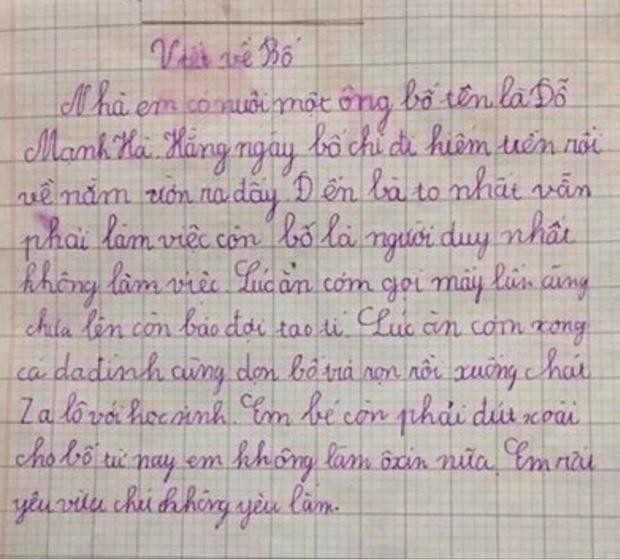 Viết về Bố
Nhà em có nuôi một ông bố tên là Đỗ
Mạnh Hà. Hằng ngày bố chỉ đi kiếm tiền rồi
về nằm ườn ra đấy. Đến bà to nhất vẫn
phải làm việc còn bố là người duy nhất
không làm việc. Lúc ăn cơm gọi mấy lần cũng
chưa lên còn bảo đợi tao tí. Lúc ăn cơm xong
cả dađình cùng dọn bố trả rọn rồi xuống chát
Za lô với học sinh. Em bé còn phải đút xoài
cho bố từ nay em không làm ôxin nữa. Em rất
yêu việc chứ không yêu lắm.